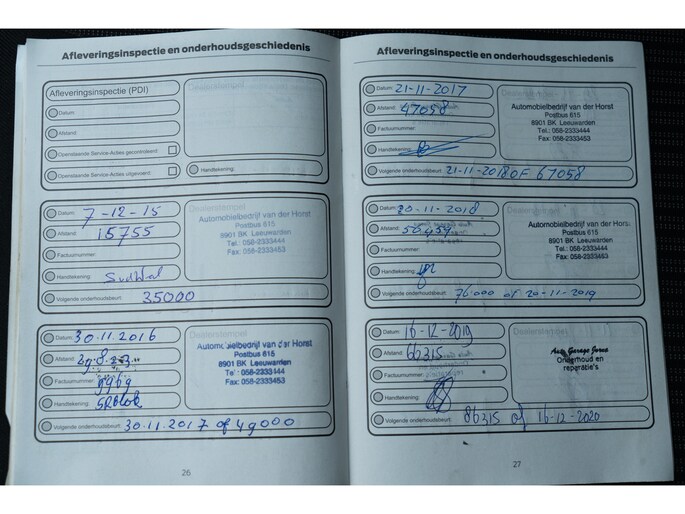 Afleveringsinspectie en onderhoudsgeschiedenis
Afleveringsinspectie (PDI)
Dealerstempel
Datum:
Afstand:
Openstaande Service-Acties gecontroleerd:
Openstaande Service-Acties uitgevoerd:
Handtekening:
Datum: 7-12-15
Afstand: 15755
Factuurnummer:
Handtekening:
Volgende onderhoudsbeurt: 35000
Dealerstempel
Automobielbedrijf van der Horst
Postbus 615
8901 BK Leeuwarden
Tel.: 058-2333444
Fax: 058-2333453
Datum: 30.11.2016
Afstand:
Factuurnummer:
Handtekening:
Volgende onderhoudsbeurt: 30.11.2017 of 49000
Dealerstempel
Automobielbedrijf van der Horst
Postbus 615
8901 BK Leeuwarden
Tel.: 058-2333444
Fax: 058-2333453
26
Afleveringsinspectie en onderhoudsgeschiedenis
Datum: 21-11-2017
Afstand: 47058
Factuurnummer:
Handtekening:
Volgende onderhoudsbeurt: 21-11-2018 OF 67058
Dealerstempel
Automobielbedrijf van der Horst
Postbus 615
8901 BK Leeuwarden
Tel.: 058-2333444
Fax: 058-2333453
Datum: 20-11-2018
Afstand:
Factuurnummer:
Handtekening:
Volgende onderhoudsbeurt: 76000 of 20-11-2019
Dealerstempel
Automobielbedrijf van der Horst
Postbus 615
8901 BK Leeuwarden
Tel.: 058-2333444
Fax: 058-2333453
Datum: 16-12-2019
Afstand: 66315
Factuurnummer:
Handtekening:
Volgende onderhoudsbeurt: 86315 of 16-12-2020
Dealerstempel
Garage
Onderhoud en
reparatie's
27